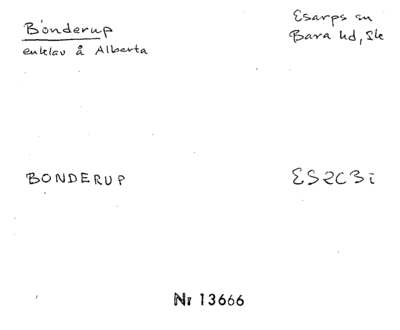 Bönderup
enklav å Alberta
Esarps sn
Bara hd, Sk
BONDERUP
ES2C3i
Nr 13666